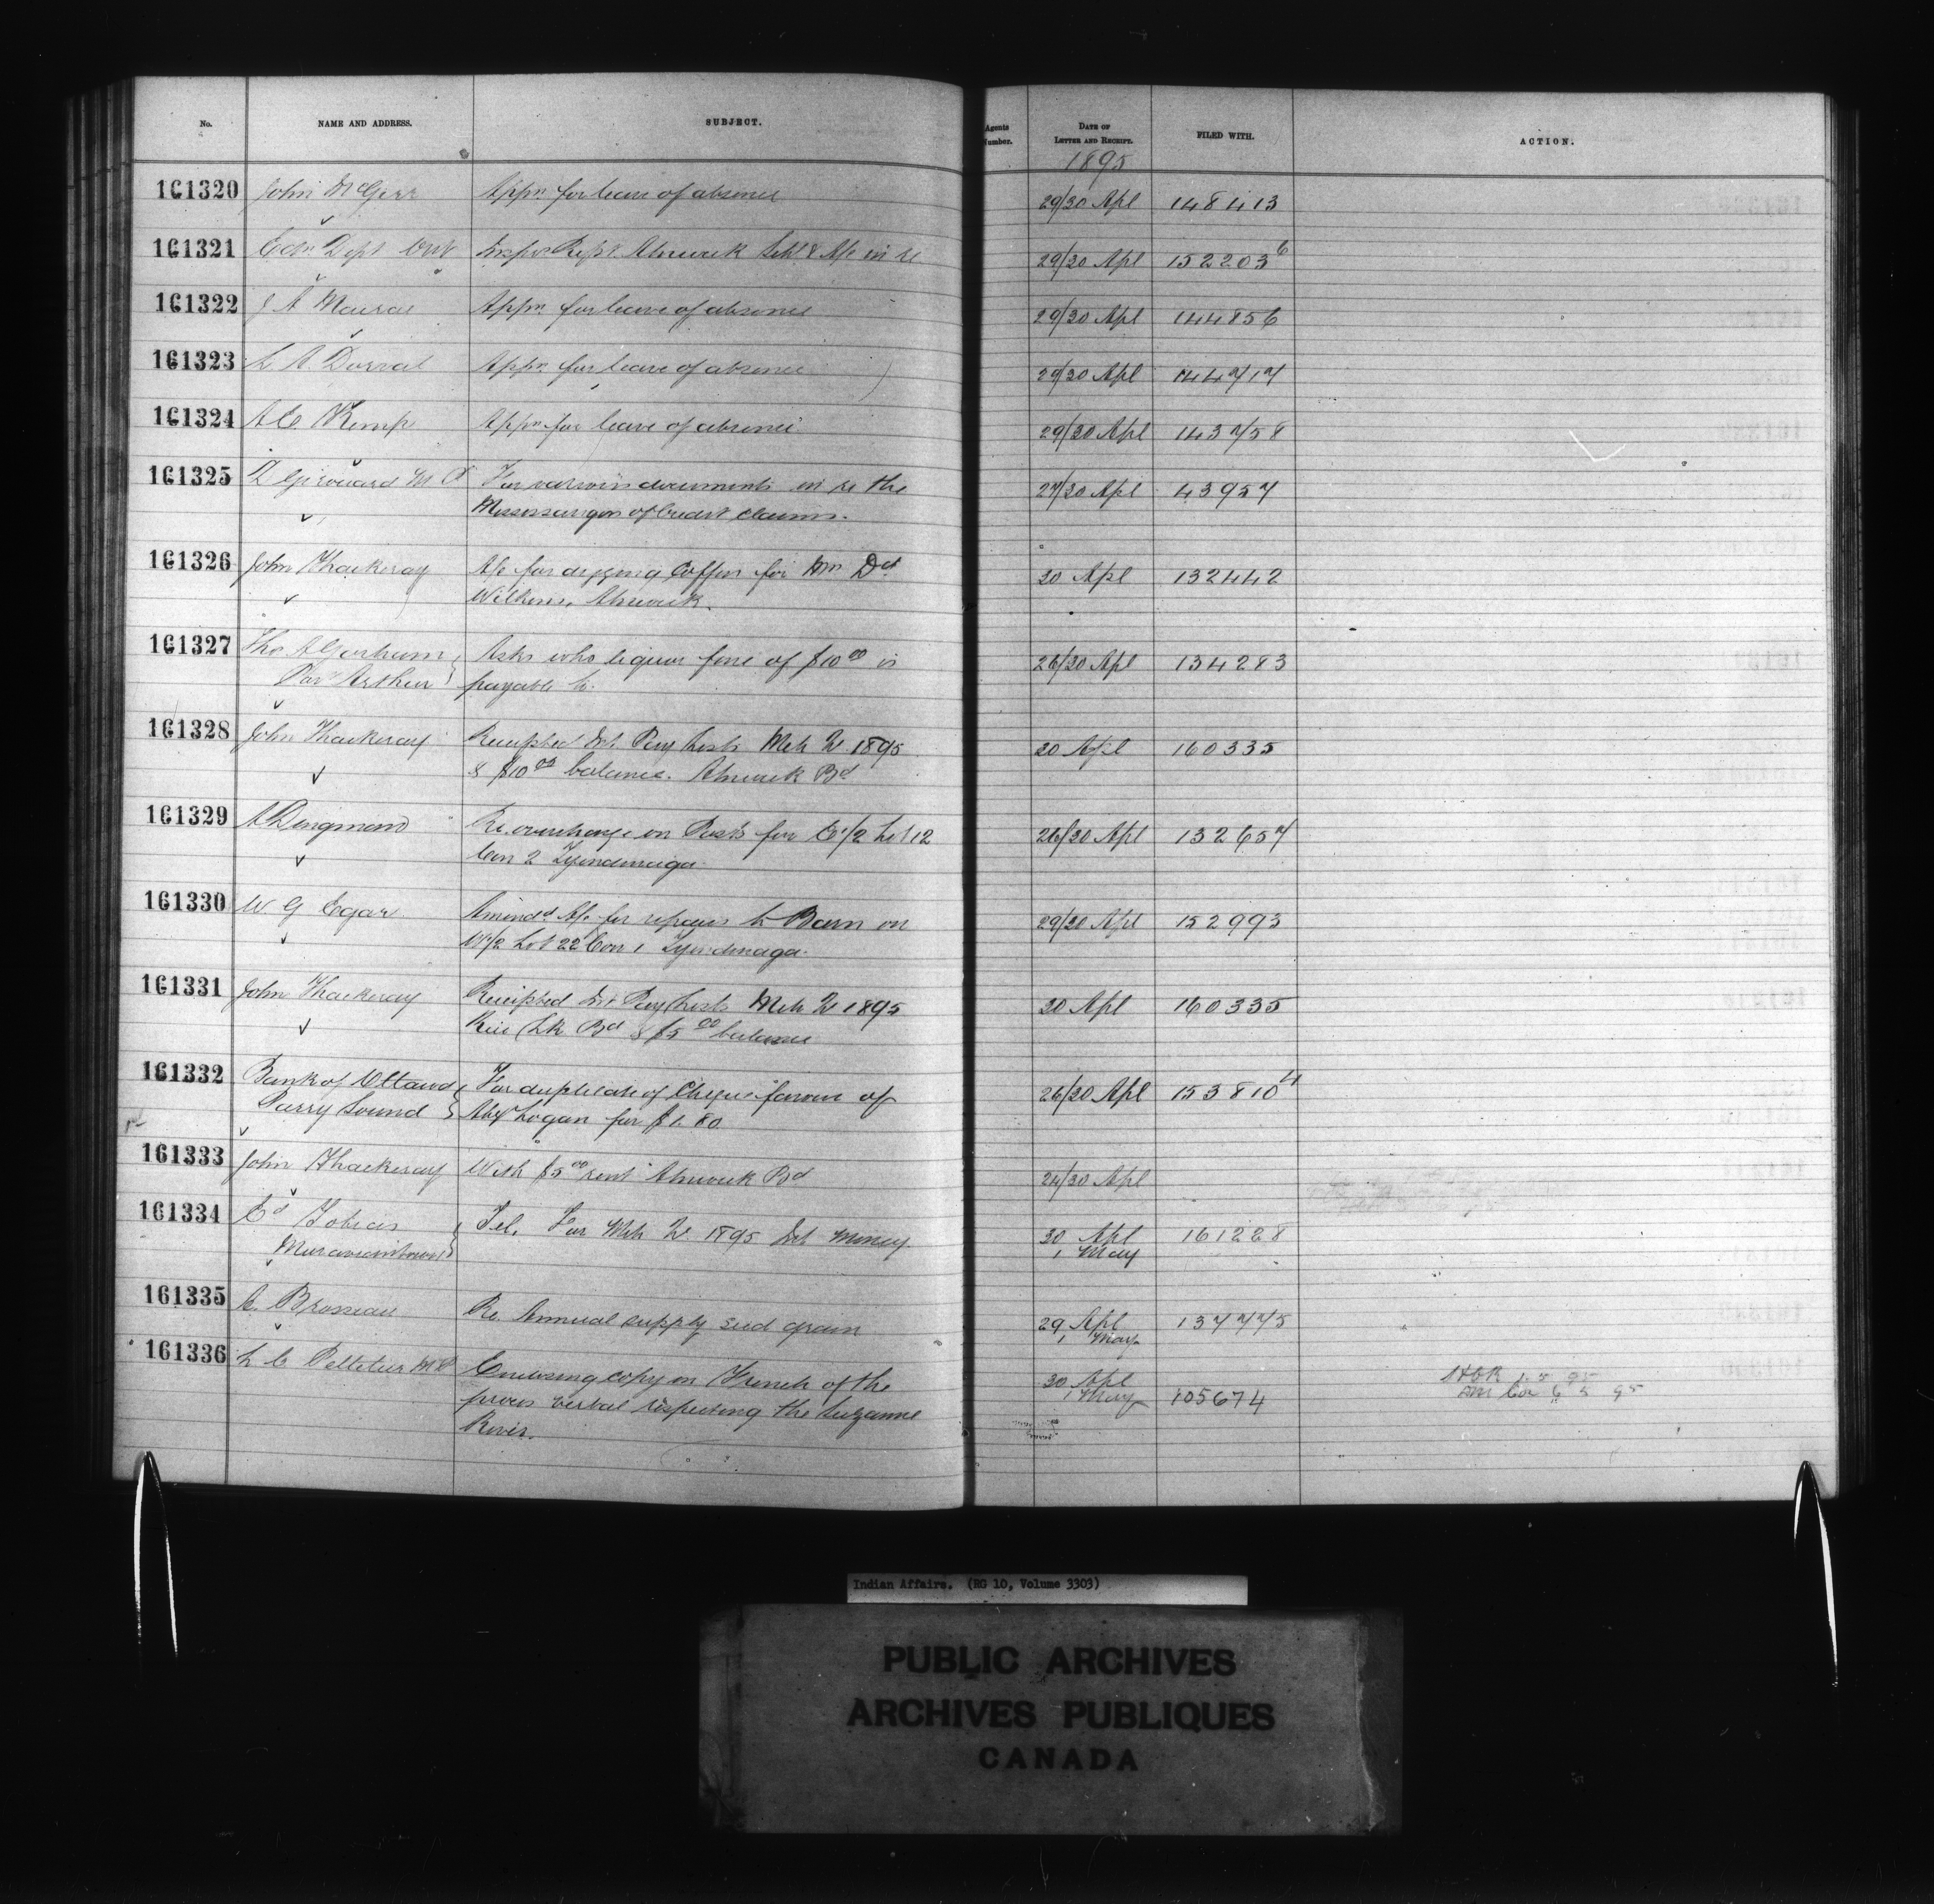 No. NAME AND ADDRESS. SUBJECT. Agents Number. DATE OF LETTER AND RECEIPT. FILED WITH. ACTION.
1895
161320 John McGirr Appn. for leave of absence 29/30 Apl 148413
161321 Edn. Dept Ont Insprs Rept. Alnwick Schl & A/c in re 29/30 Apl 152203 6
161322 J A Macrae Appn. for leave of absence 29/30 Apl 144856
161323 L A Dorval Appn. for leave of absence 29/30 Apl 144717
161324 A E Kemp Appn for leave of absence 29/30 Apl 143758
161325 D Girouard M P For various documents in re the 27/30 Apl 43957
Mississaugas of Credit claims.
161326 John Thackeray A/c for digging Coffin for Mrs Dd 30 Apl 132442
Wilkins, Alnwick.
161327 Tho A Gorham Asks who liquor fine of $10 00 is 26/30 Apl 134283
Port Arthur payable to.
161328 John Thackeray Receipted Int Pay Lists Mch Qr 1895 30 Apl 160335
& $10 00 balance. Alnwick Bd
161329 A Dingman Re. overcharge on Posts for E 1/2 Lot 12 26/30 Apl 132657
Con 2 Tyendinaga
161330 W. G Egar Amendd A/c for repairs to Barn on 29/30 Apl 152993
W 1/2 Lot 22 Con 1 Tyendinaga.
161331 John Thackeray Receipted Int Pay Lists Mch Qr 1895 30 Apl 160335
Rice Lk Bd & $5 00 balance
161332 Bank of Ottawa For duplicate of Cheque favour of 26/30 Apl 153810 4
Parry Sound Alex Logan for $1.80
161333 John Thackeray With $5 00 rent Alnwick Bd 24/30 Apl
161334 Ed Tobias Tel. For Mch Qr 1895 Int money 30 Apl 161228
Moraviantown 1 May
161335 A. Brosseau Re. Annual supply seed grain 29 Apl 137775
1 May
161336 L C Pelletier M P Enclosing copy in French of the 30 Apl 105674
1 May
proces verbal respecting the Suzanne
River.
95
Indian Affairs. (RG 10, Volume 3303)
PUBLIC ARCHIVES
ARCHIVES PUBLIQUES
CANADA